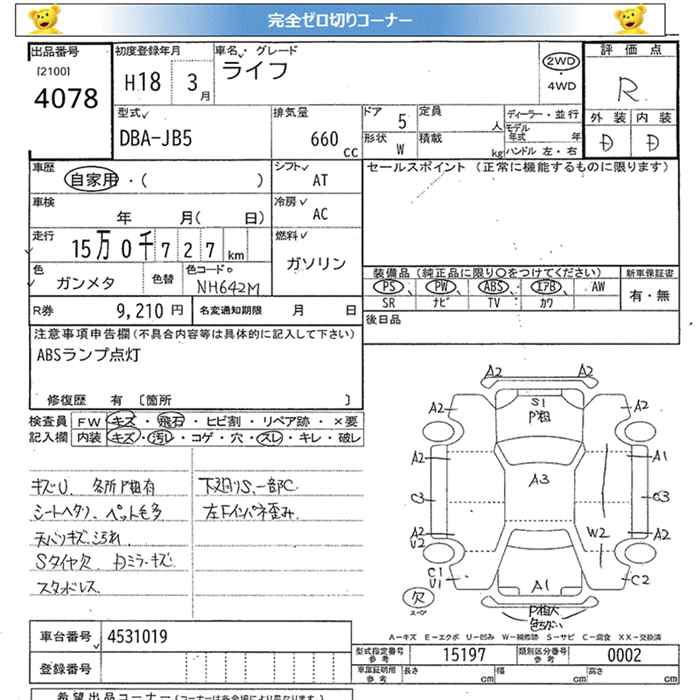 完全ゼロ切りコーナー
出品番号
[2100]
4078
初度登録年月
H18 3月
車名・グレード
ライフ
2WD
・
4WD
評価点
R
外装 内装
D D
型式
DBA-JB5
排気量
660 cc
ドア 5
形状 W
定員 人
積載 kg
ディーラー・並行
モデル年式 年
ハンドル 左・右
車歴
自家用・( )
シフト
AT
セールスポイント (正常に機能するものに限ります)
車検
年 月( 日)
冷房
AC
走行
15万0千727km
燃料
ガソリン
色
ガンメタ
色替
色コードo
NH642M
装備品(純正品に限り○をつけてください)
新車保証書
PS PW ABS エアB AW
SR ナビ TV カワ
有・無
R券 9,210円
名変通知期限 月 日
後日品
注意事項申告欄(不具合内容等は具体的に記入して下さい)
ABSランプ点灯
修復歴 有 〔箇所 〕
検査員記入欄
FW キズ・飛石・ヒビ割・リペア跡・×要
内装 キズ・汚レ・コゲ・穴・スレ・キレ・破レ
キズU、各所P粗有
シートヘタリ、ペット毛多
天バリキズ汚れ
Sタイヤ欠 Dミラーキズ
スタッドレス
下廻りS、一部C
左Fインパネ歪み
A2 A2
S1
P粗
A2 A2
A2 A1
A3
C3 C3
A2 U2
W2
A2
C1 U1
C2
A1
欠
P粗大
色ちがい
A-キズ E-エクボ U-凹み W-補修跡 S-サビ C-腐食 XX-交換済
車台番号 4531019
登録番号
型式指定番号 参考 15197
類別区分番号 参考 0002
車庫証明用 参考 長さ cm 幅 cm 高さ cm
希望出品コーナー(コーナーは各会場により異なります)